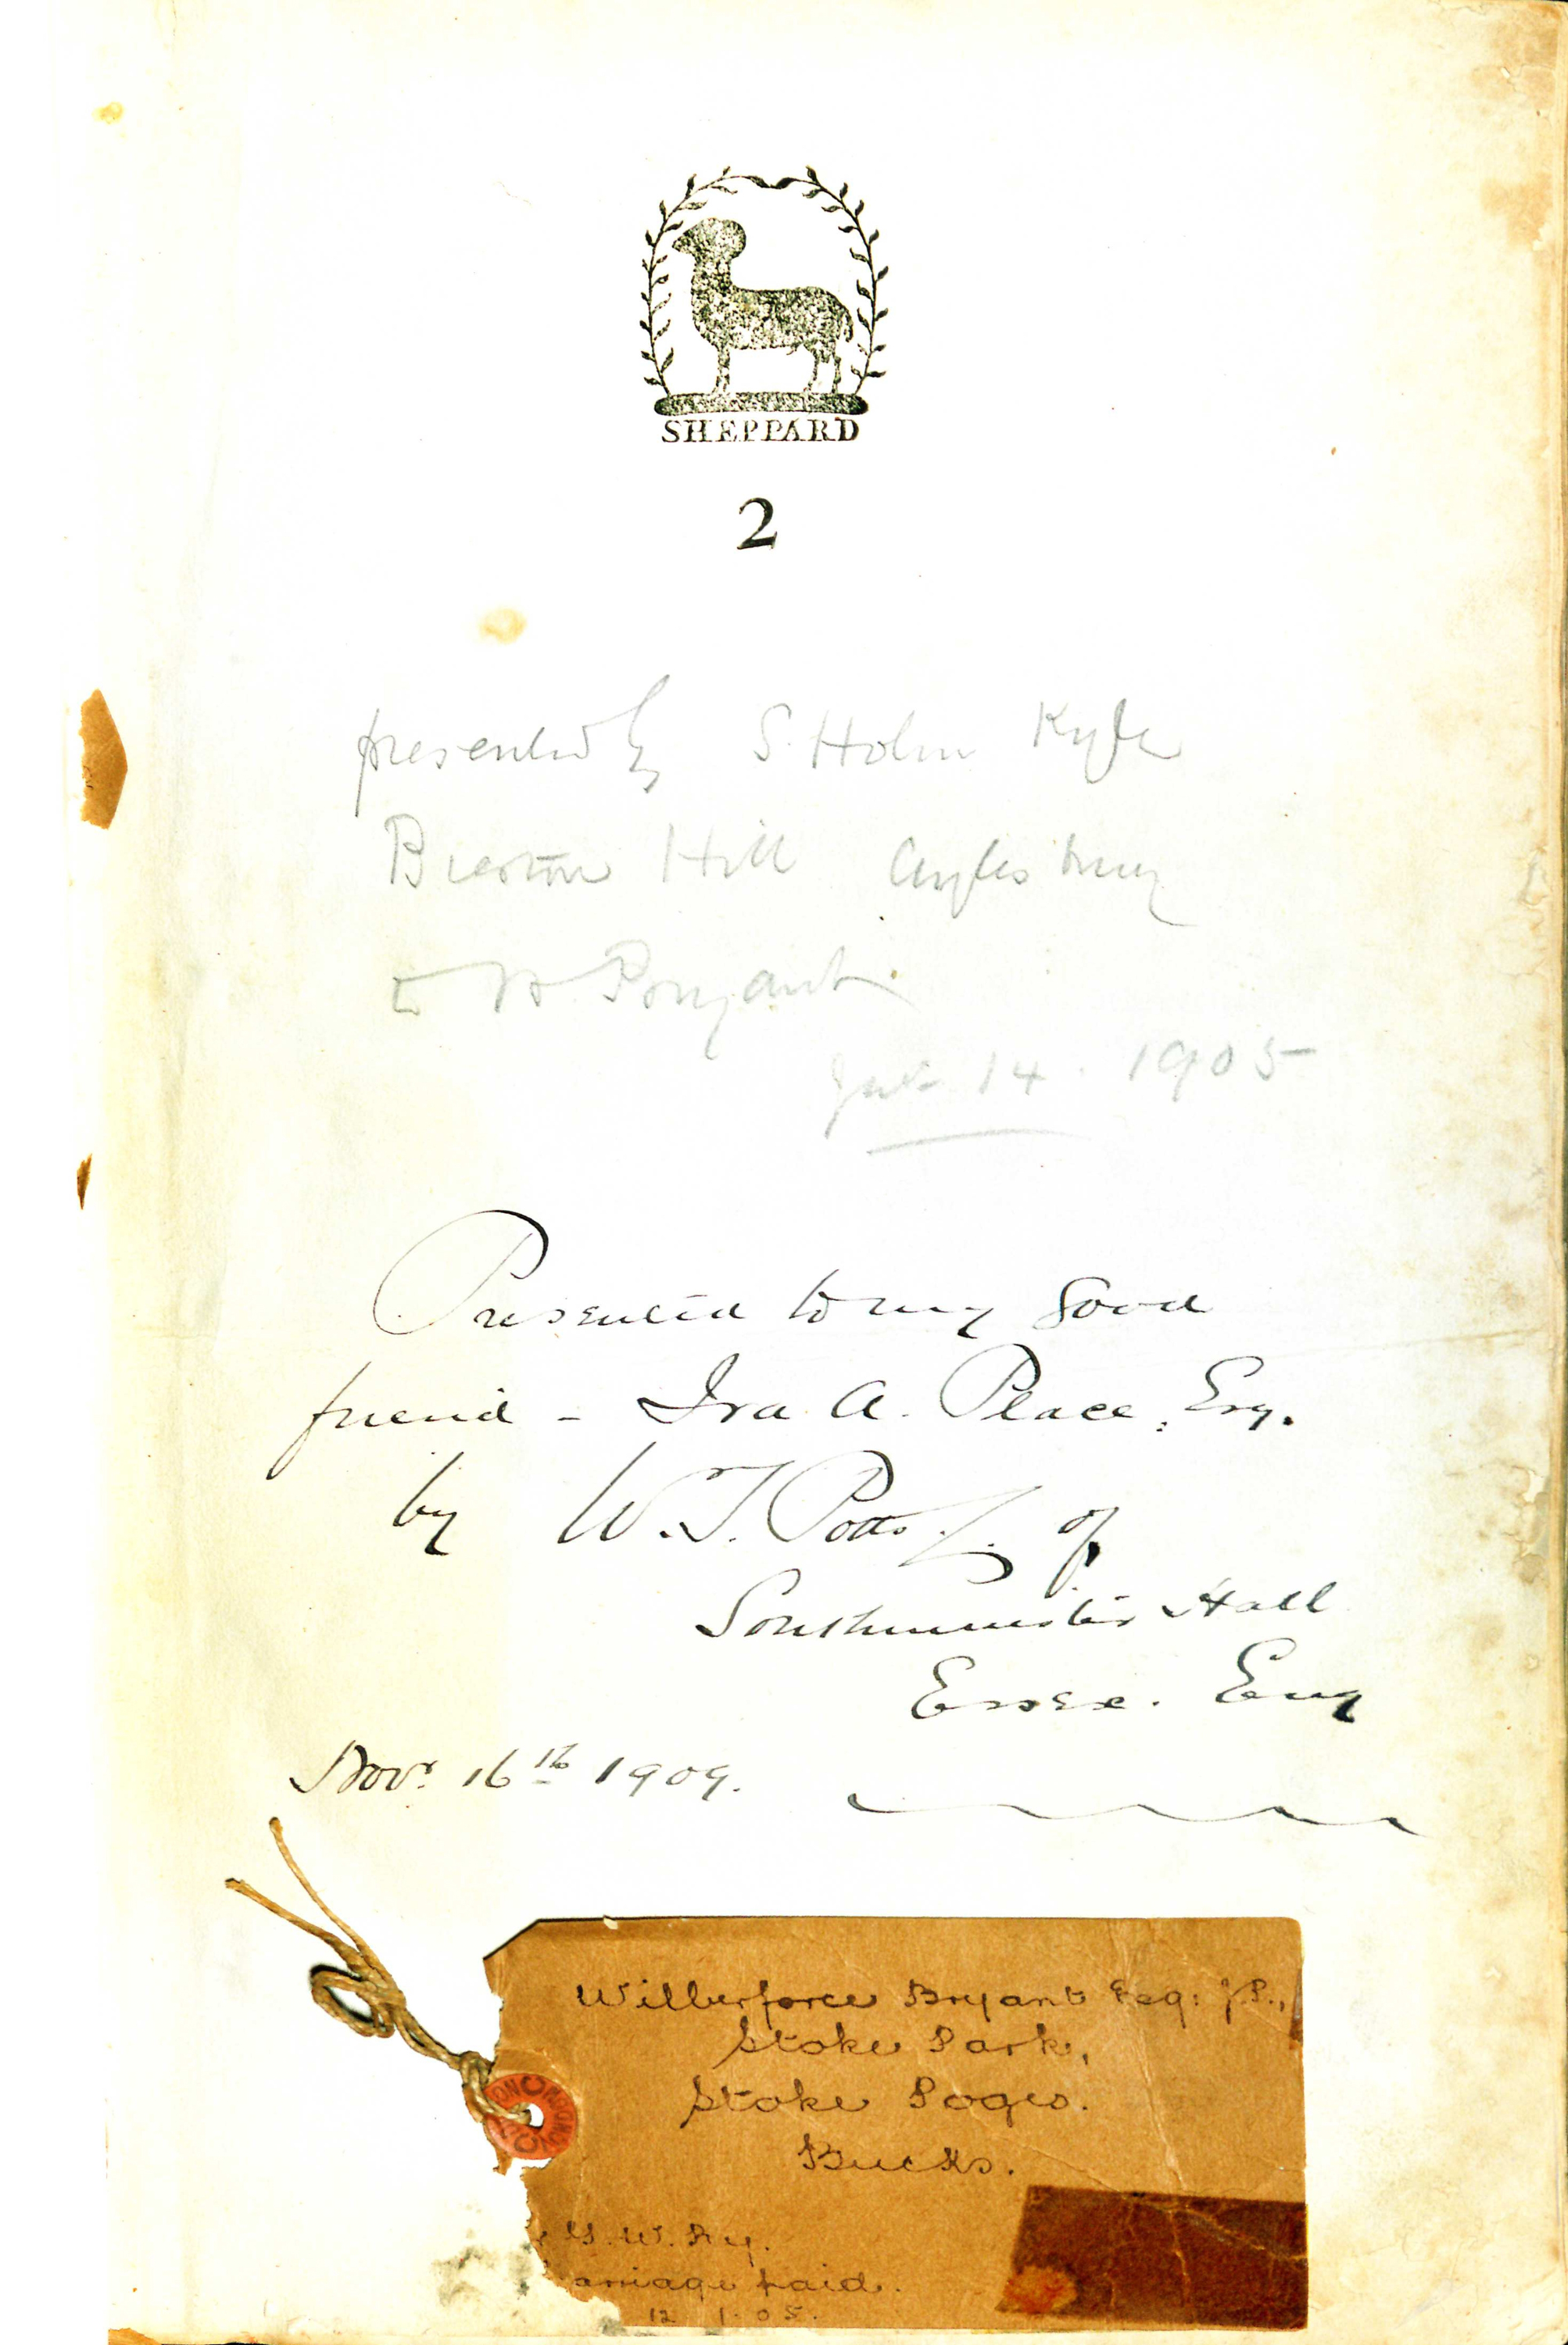 SHEPPARD
2
presented by S. Holm Kyle
Hill Aylesbury
to W Bryant
14. 1905
Presented to my good
friend - Ira A. Place, Esq.
by W. T. Potts of
Southminster Hall
Essex. Eng
Novr. 16th 1909.
Wilberforce Bryant Esq: J.P.,
Stoke Park,
Stoke Poges.
Bucks.
G. W. Ry.
arriage paid.
12 1. 05.
LONDON